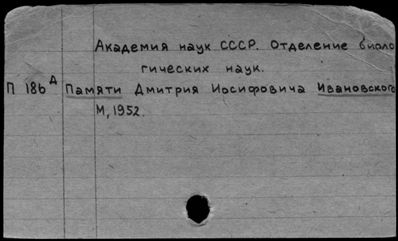 Академия наук СССР. Отделение биоло
гических наук.
П 186 д Памяти Дмитрия Иосифовича Ивановского
М, 1952.